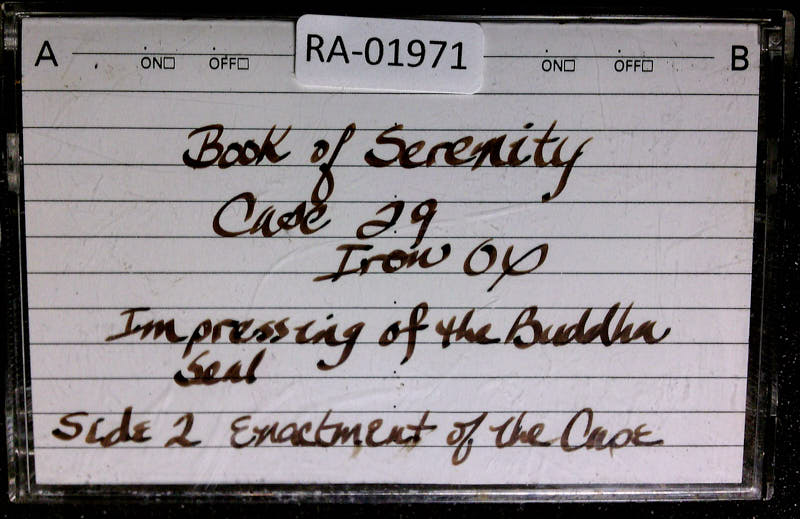 A RA-01971 B
ON□ OFF□ ON□ OFF□
Book of Serenity
Case 29
Iron Ox
Impressing of the Buddha
Seal
Side 2 Enactment of the Case